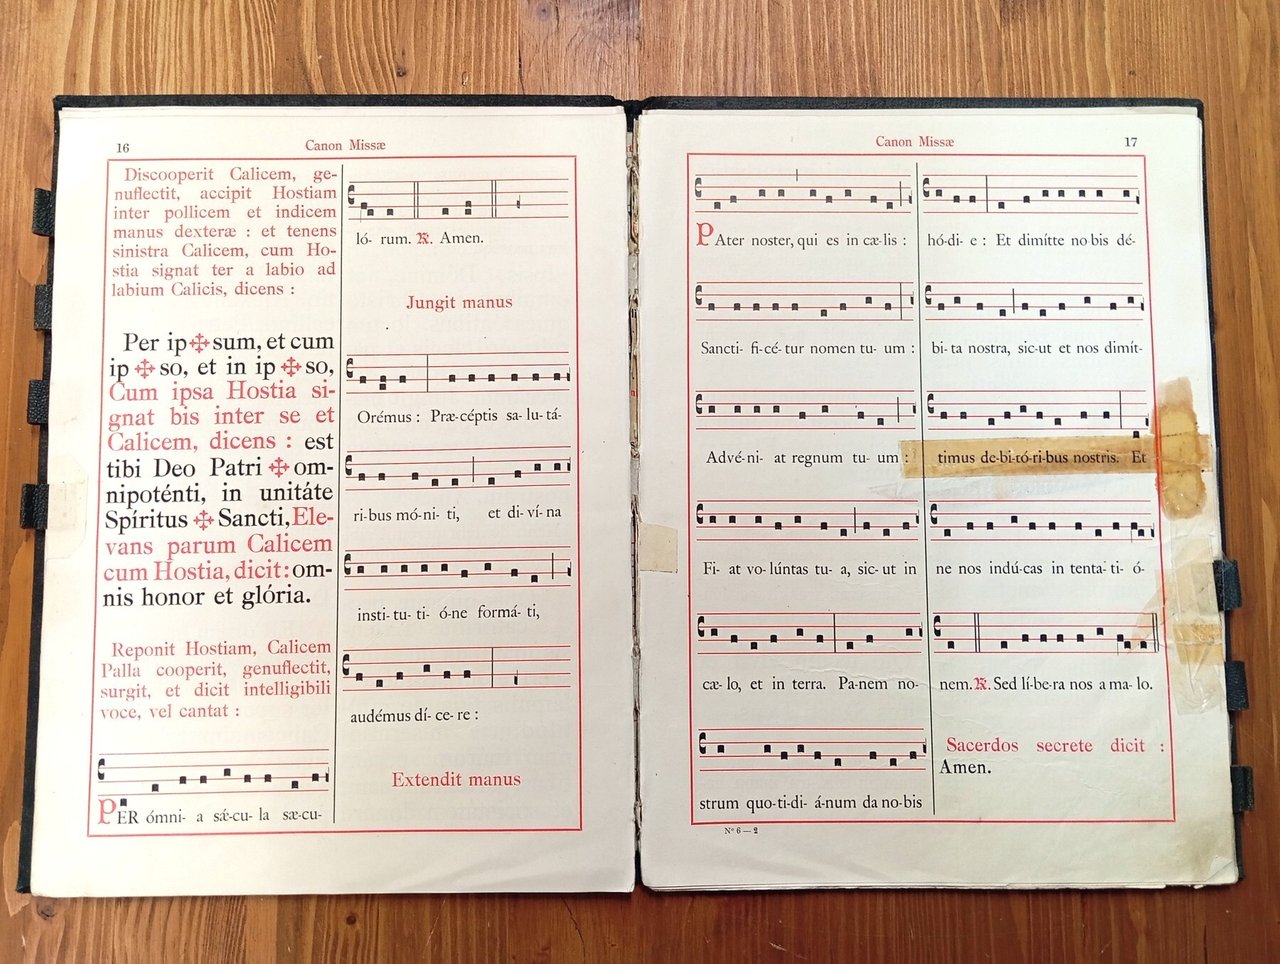 16
Canon Missæ
Discooperit Calicem, ge-
nuflectit, accipit Hostiam
inter pollicem et indicem
manus dexteræ : et tenens
sinistra Calicem, cum Ho-
stia signat ter a labio ad
labium Calicis, dicens :
Per ip✠sum, et cum
ip✠so, et in ip✠so,
Cum ipsa Hostia si-
gnat bis inter se et
Calicem, dicens : est
tibi Deo Patri ✠ om-
nipoténti, in unitáte
Spíritus ✠ Sancti, Ele-
vans parum Calicem
cum Hostia, dicit: om-
nis honor et glória.
Reponit Hostiam, Calicem
Palla cooperit, genuflectit,
surgit, et dicit intelligibili
voce, vel cantat :
PER ómni- a sǽ-cu- la sæ-cu-
ló- rum. ℟. Amen.
Jungit manus
Orémus : Præ-céptis sa- lu- tá-
ri- bus mó- ni- ti, et di- ví- na
insti- tu- ti- ó-ne formá- ti,
audémus dí- ce- re :
Extendit manus
Canon Missæ
17
PAter noster, qui es in cæ-lis :
Sancti- fi- cé- tur nomen tu- um :
Advé- ni- at regnum tu- um :
Fi- at vo- lúntas tu- a, sic- ut in
cæ- lo, et in terra. Pa-nem no-
strum quo-ti-di- á-num da no-bis
hó-di- e : Et dimítte no bis dé-
bi- ta nostra, sic-ut et nos dimít-
timus de-bi-tó-ri-bus nostris. Et
ne nos indú-cas in tenta- ti- ó-
nem. ℟. Sed lí-be-ra nos a ma- lo.
Sacerdos secrete dicit :
Amen.
Nº 6 — 2